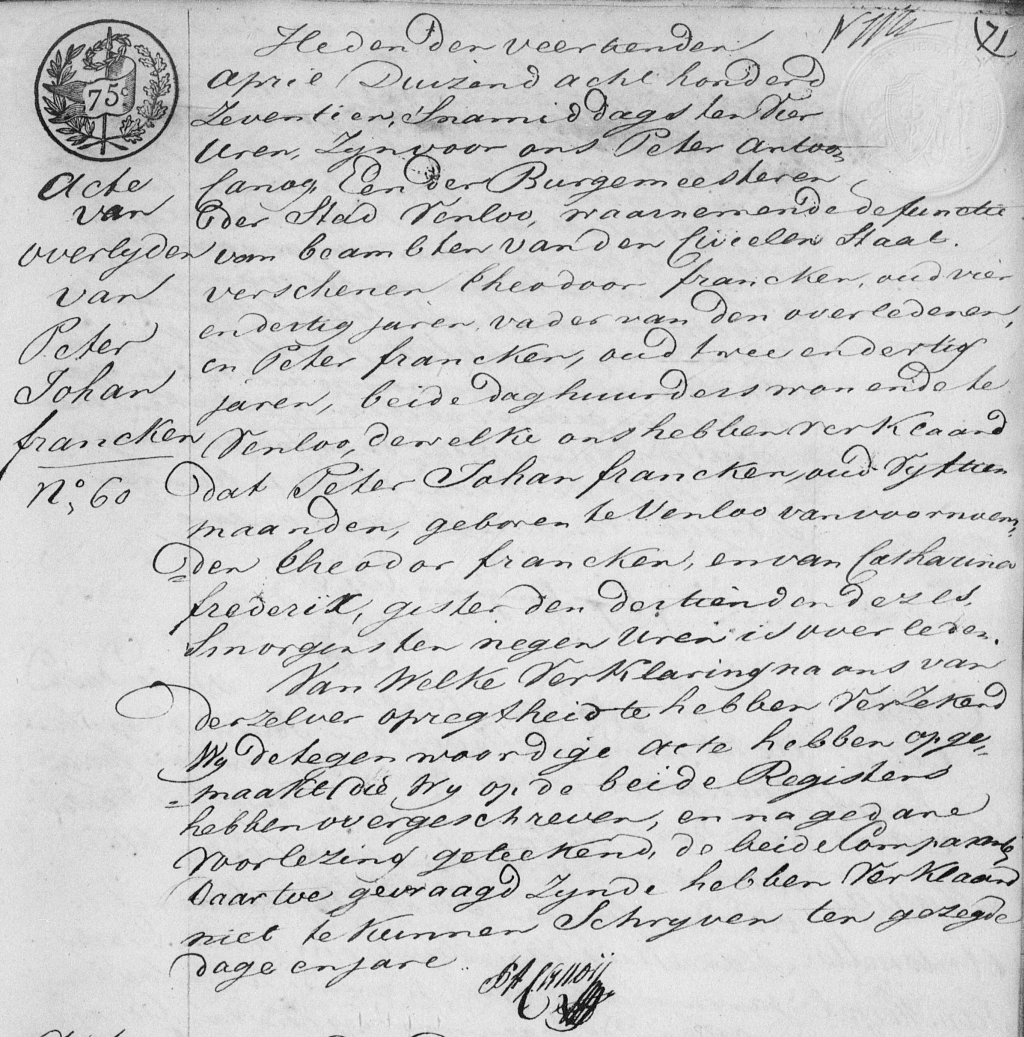 71
75 c.
Acte
van
overlyden
van
Peter
Johan
francken
N.o 60
Heden den veertienden
April Duizend acht honderd
Zeventien, Snamiddags ten vier
uren, Zyn voor ons Peter Antoo,
Canoy, Een der Burgemeesteren
der Stad Venloo, waarnemende de functie
van beambten van den Civielen Staat.
verschenen Theodoor francken, oud vier
en dertig jaren, vader van den overledenen,
en Peter francken, oud twee en dertig
jaren, beide daghuurders wonende te
Venloo, dewelke ons hebben verklaard
dat Peter Johan francken, oud Vyftien
maanden, geboren te Venloo van voornoem=
=den Theodor francken, en van Catharina
frederix, gister den dertienden dezes,
Smorgens ten negen Uren is overleden.
Van Welke Verklaring na ons van
derzelver opregtheid te hebben Verzekerd
Wy de tegenwoordige acte hebben opge=
=maakt die Wy op de beide Registers
hebben overgeschreven, en na gedane
Voorlezing geteekend, de beide Comparenten
Daartoe gevraagd Zynde hebben Verklaard
niet te kunnen Schryven ten gezegde
dage en jare
PA Canoij